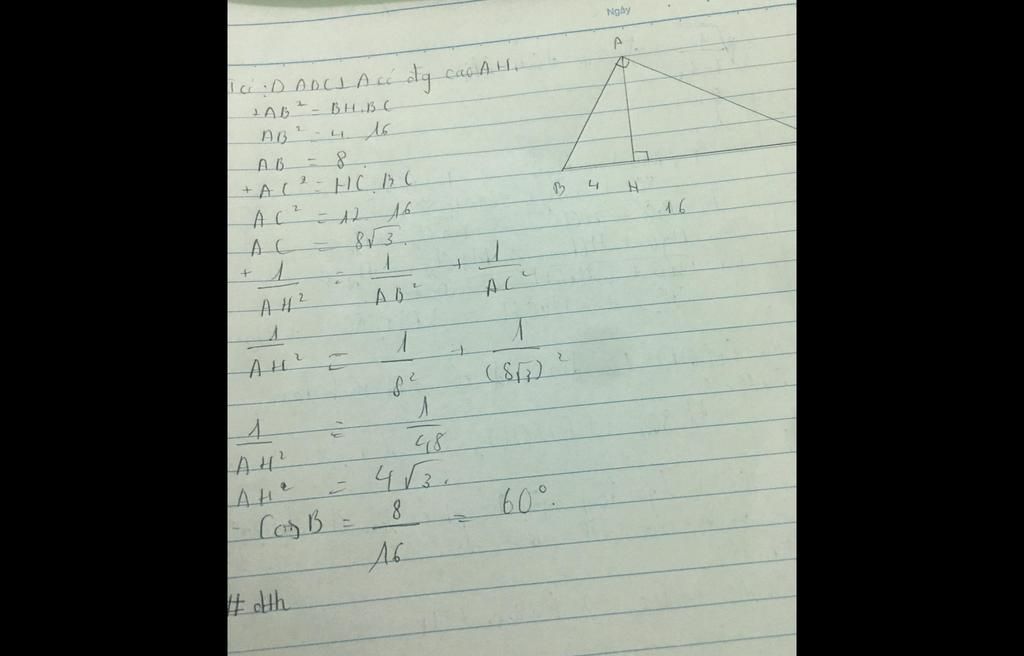 Ngày
A
Tcí : D ABC ⊥ A có đg cao AH.
+ AB² = BH.BC
AB² = 4. 16
AB = 8.
+ AC² = HC.BC
B 4 H
AC² = 12 16
16
AC = 8√3.
+ 1/AH² = 1/AB² + 1/AC²
1/AH² = 1/8² + 1/(8√3)²
1/AH² = 1/48
AH² = 4√3.
- Cos B = 8/16 = 60°.
# dth